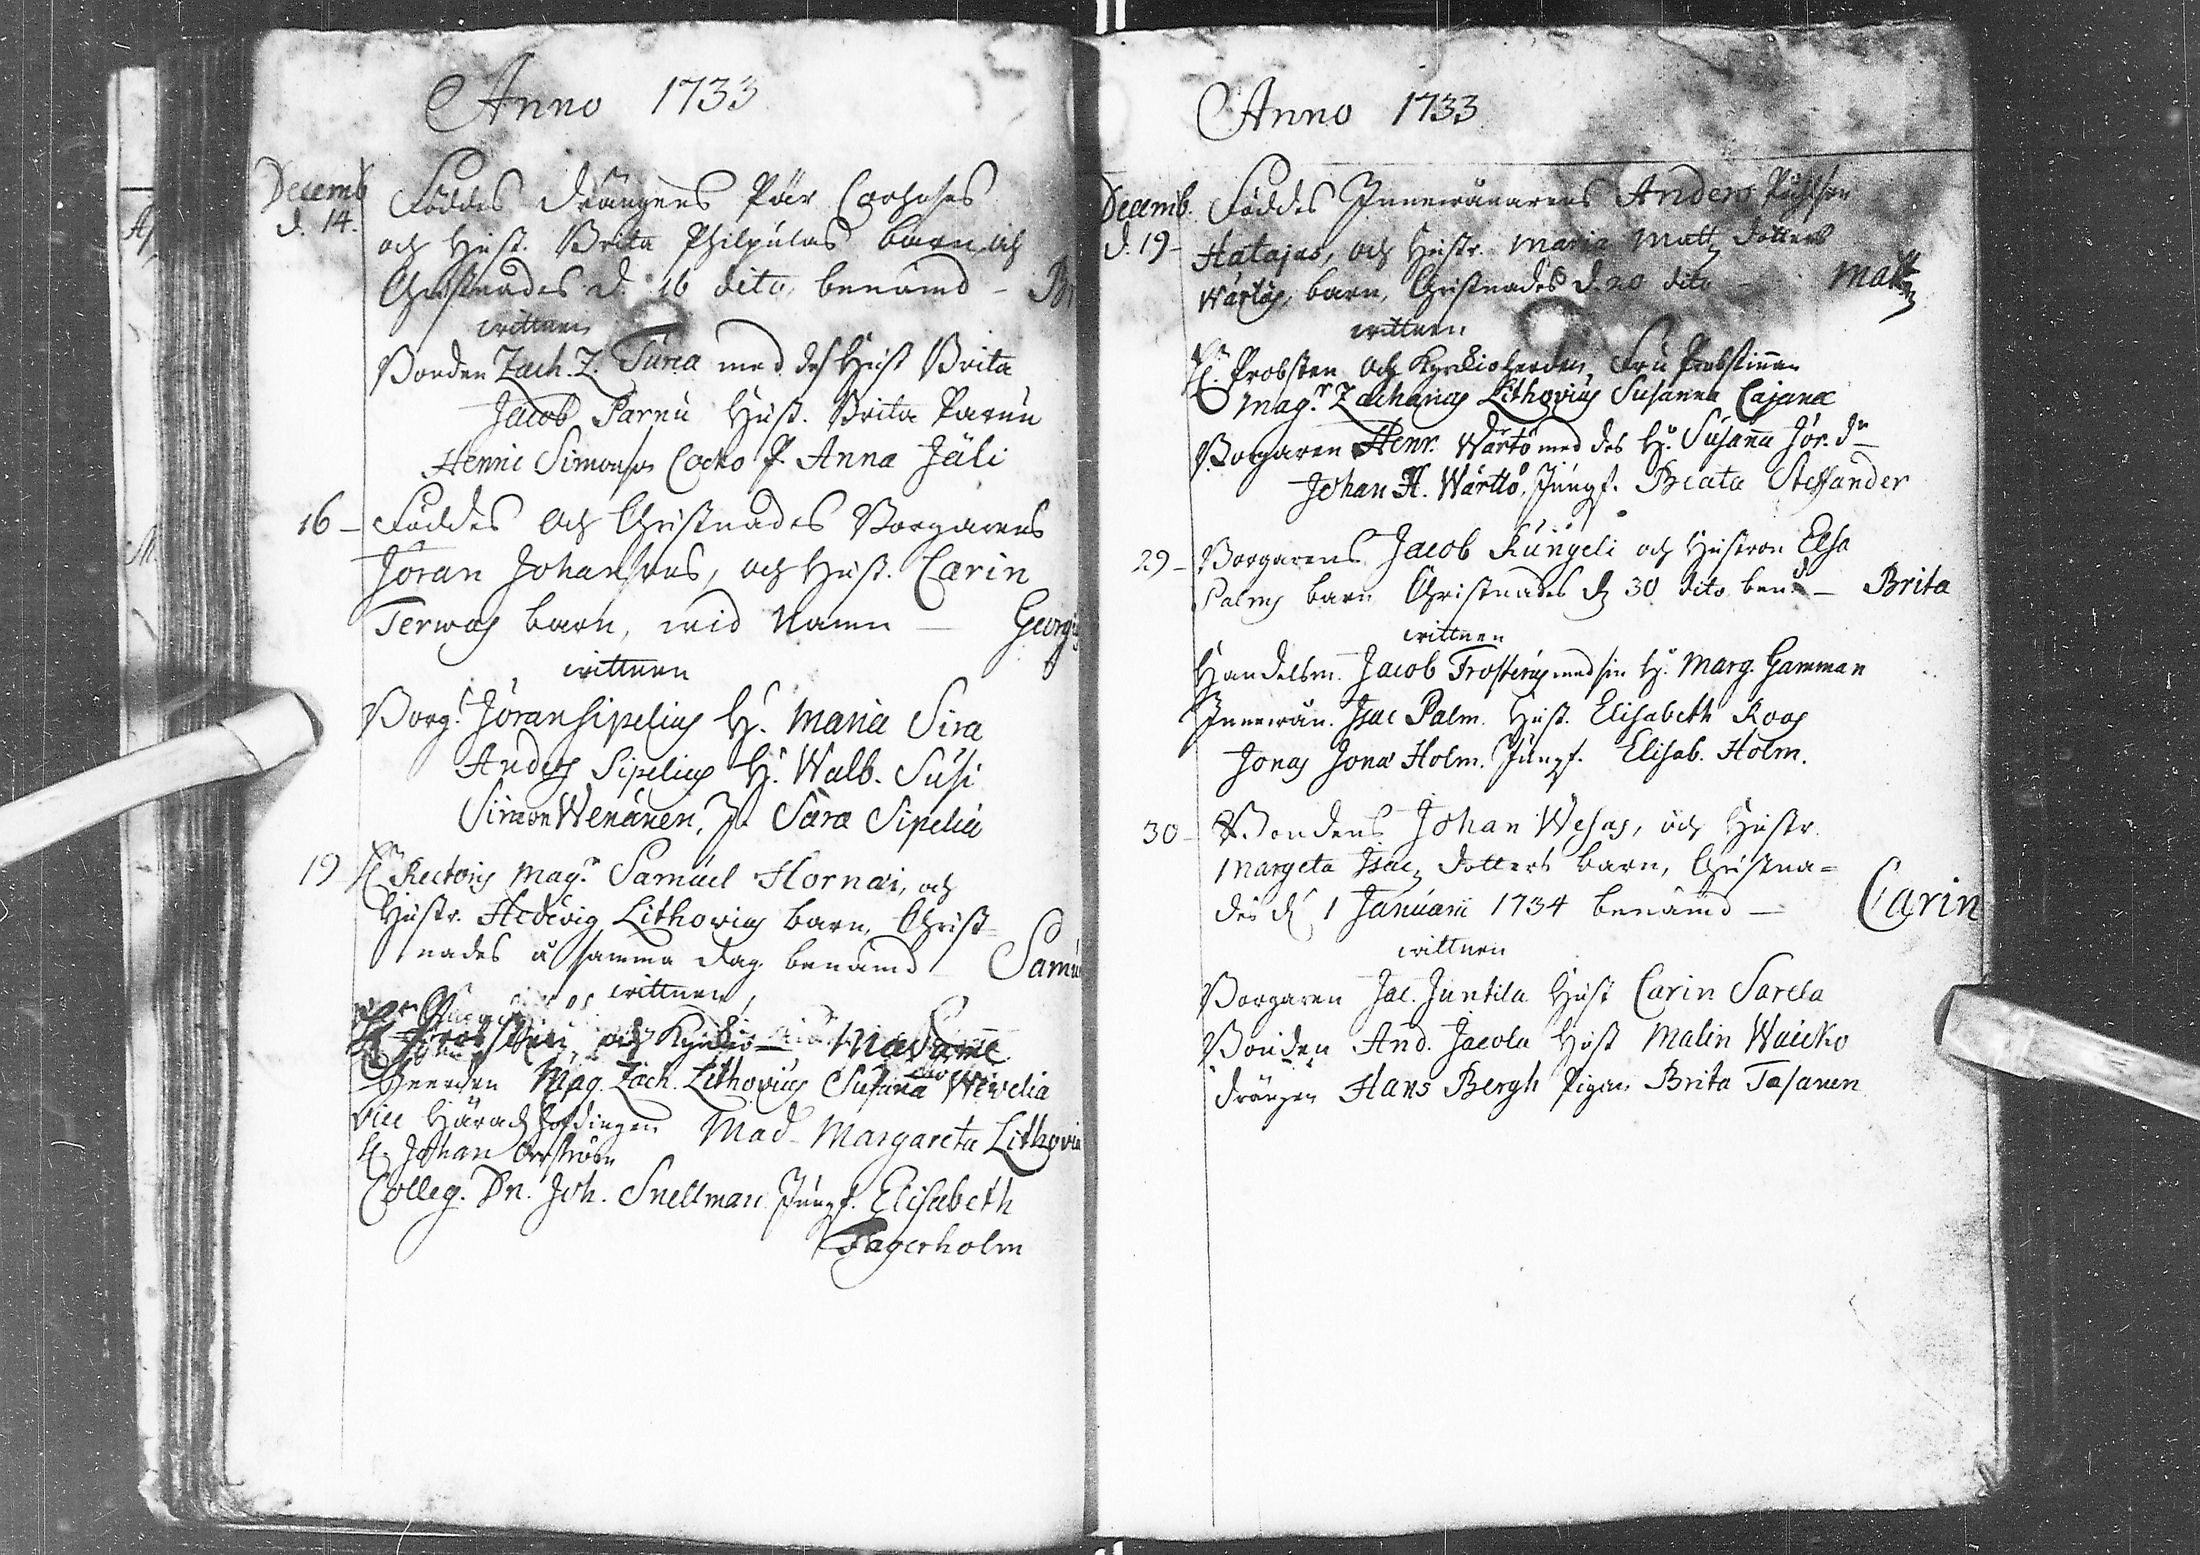 Anno 1733
Decemb. Föddes Drängens Pär
d. 14. och Hust. Brita Philpulas barn och
Christnades d. 16 dito, benämd – Br
wittnen
Bonden Zach. Z. Turia med dess Hust Brita
Jacob Parnu Hust. Brita Parnu
Henric Simonss. Cocko P. Anna Jäli
16 – Föddes och Christnades Borgarens
Jöran Johanssons, och Hust. Carin
Terwas barn, wid Namn — Georgius
wittnen
Borg. Jöran Sipelius H. Maria Sira
Anders Sipelius H. Walb. Susi
Simon Wenänen, J. Sara Sipelia
19 H. Rectoris Mag.r Samuel Hornæi, och
Hustr. Hedewig Lithovius barn, Christ=
nades å samma dag benämd Samu
wittnen
H. Probsten, och Kyrkio Madame
Heerden Mag. Zach. Lithovius Susanna Wewelia
vice Häradzhöfdingen Mad. Margareta Lithovia
H. Johan
Colleg. Dn. Joh. Snellman Jungf. Elisabeth
Fagerholm
Anno 1733
Decemb. Föddes Innewånarens Anders
d. 19 – Hatajas, och Hustr. Maria Matz dotters
Wärtös, barn, Christnades d. 20 dito — Matz
wittnen
H. Probsten och Kyrkioherden, Fru Probstinnan
Mag.r Zacharias Lithovius Susanna Cajanæ
Borgaren Henr. Wärtö med des H. Susanna Jör. dr
Johan H. Wärttö, Jungf. Beata Steffander
29 – Borgarens Jacob Kungeli och Hustron Elsa
Palms barn Christnades d. 30 dito ben.d — Brita
wittnen
Handelsm. Jacob Frosterus med sin H. Marg. Gamman
Innewån. Isac Palm. Hust. Elisabeth Roos
Jonas Jonæ Holm. Jungf. Elisab. Holm.
30 – Bondens Johan Wesas, och Hustr.
Margeta Isacz dotters barn, Christna=
des d. 1 Januarii 1734 benämd — Carin
wittnen
Borgaren Jac. Juntila Hust Carin Sarela
Bonden And. Jacola Hust Malin Waicko
Drängen Hans Bergh Pigan Brita Tasanen